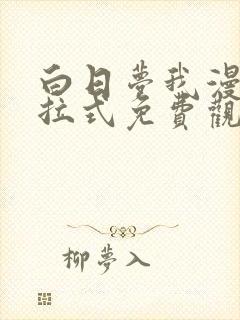 白日夢我漫
拉式免費觀
柳夢入